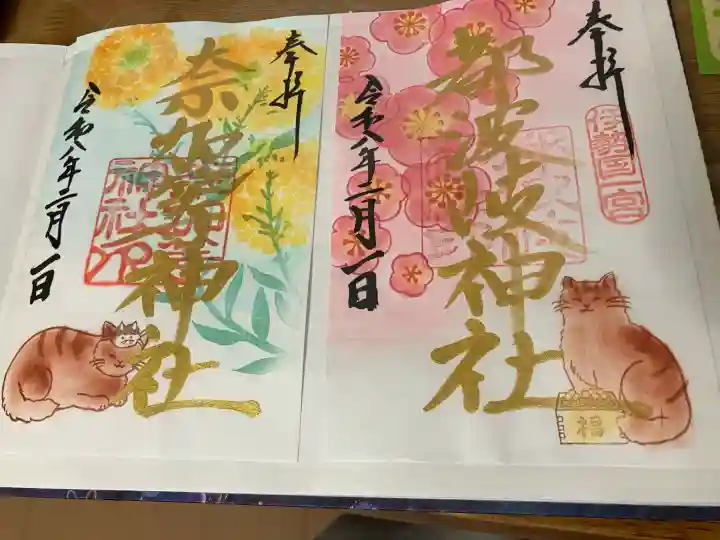 奉拝
伊勢国一宮
都波岐神社
令和八年二月一日
福
奉拝
奈加等神社
令和八年二月一日